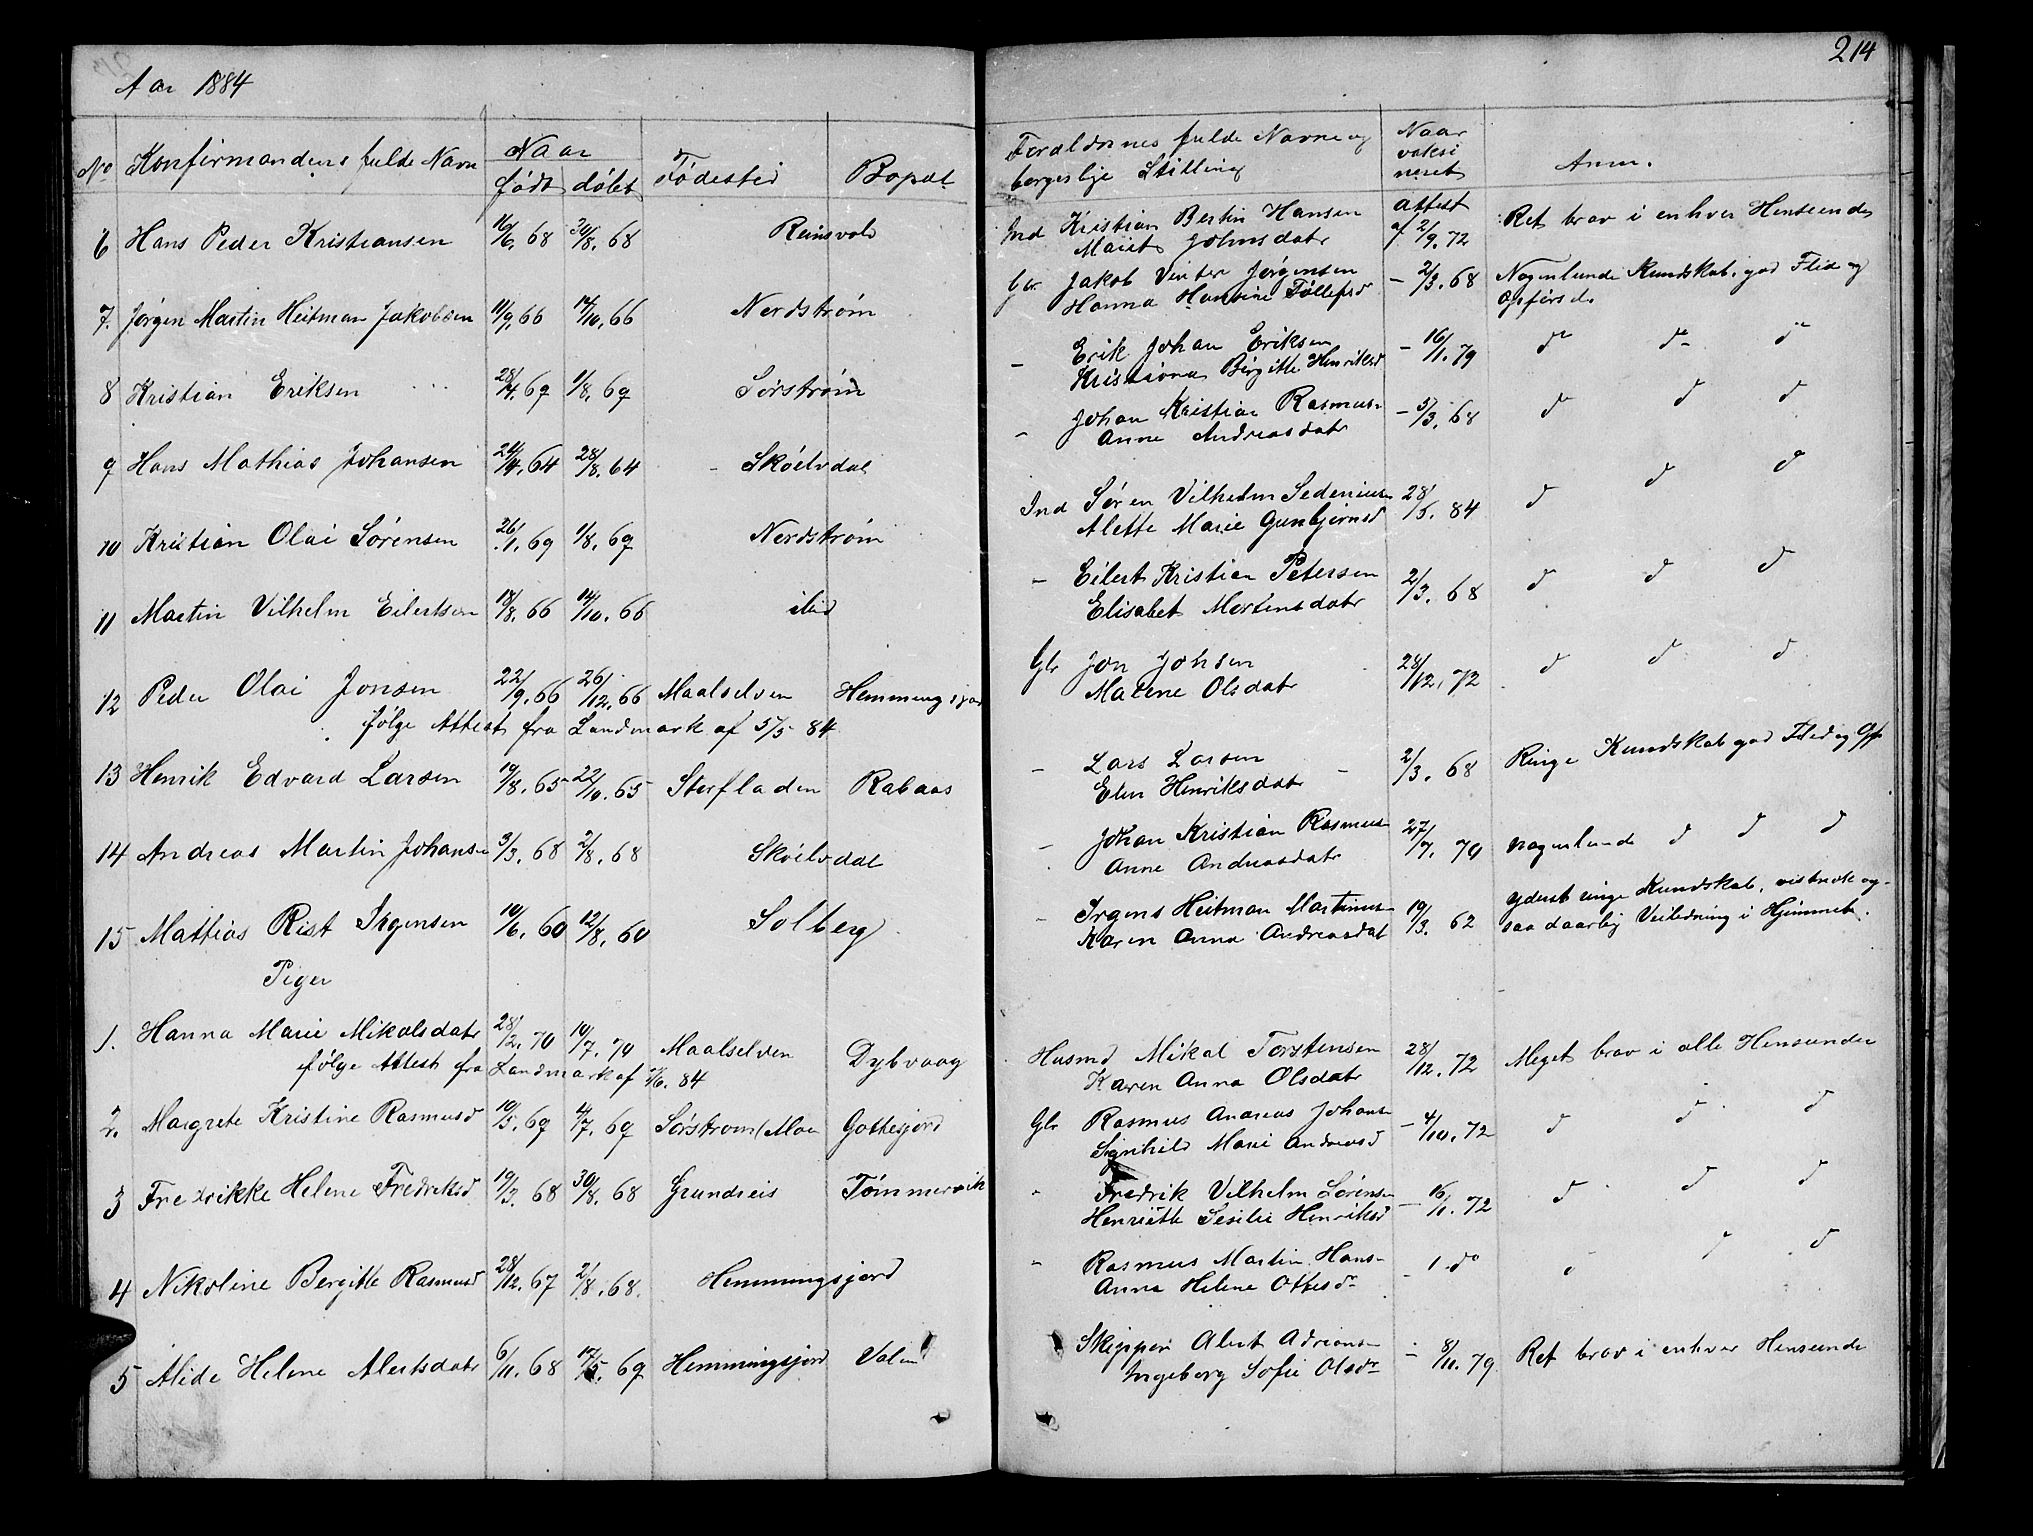 Aar 1884
214
No Konfirmandens fulde Navn
Naar
født døbt
Fødested
Bopæl
Forældrenes fulde Navne og
borgerlige Stilling
Naar
vaksi
neret
Anm.
6 Hans Peder Kristiansen 16/6. 68 30/8. 68 Reinsvold
Ind Kristian Bertin Hansen
Marit Johnsdatr
attest
af 2/9. 72
Ret brav i enhver Henseende
7. Jørgen Martin Heitman Jakobsen 11/9. 66 14/10. 66 Nordstrøm
Gbr Jakob Vinter Jørgensen
Hanna Hansine Tollefsd
- 2/3. 68
Nogenlunde Kundskab, god Flid og
Opførsel
8 Kristian Eriksen 28/4. 69 1/8. 69 Sørstrøm
- Erik Johan Eriksen
Kristiana Birgitte Henriksd
- 16/11. 79 do do do
9 Hans Mathias Johansen 24/4. 64 28/8. 64 Skøelvdal
- Johan Kristian Rasmus-
Anne Andreasdatr
- 5/3. 68 d d d
10 Kristian Olai Sørensen 26/1. 69 1/8. 69 Nordstrøm
Ind Søren Vilhelm Sedenius-
Alette Marie Gunbjørnsd
28/5. 84 d d d
11 Martin Vilhelm Eilertsen 18/8. 66 14/10. 66 ibid
- Eilert Kristian Petersen
Elisabet Mortensdatr
2/3. 68 d d d
12 Peder Olai Jonsen 22/9. 66 26/12. 66 Maalselven Hemmingsjord
følge Attest fra Landmark af 5/5 84
Gbr Jon Johsen
Marene Olsdatr
28/12. 72 d d d
13 Henrik Edvard Larsen 19/8. 65 22/10. 65 Storfladen Rabaas
- Lars Larsen
Elen Henriksdatr
2/3. 68 Ringe Kundskab god Flid og Opf
14 Andreas Martin Johansen 3/3. 68 2/8. 68 Skøelvdal
- Johan Kristian Rasmus-
Anne Andreasdatr
27/7. 79 nogenlunde d d d
15 Mathias Rist Irgensen 10/6. 60 12/8. 60 Solberg
- Irgens Heitman Martinus-
Karen Anna Andreasdat
19/3. 62
yderst ringe Kundskab, vistnok og-
saa daarlig Veiledning i Hjemmet.
Piger
1. Hanna Marie Mikalsdatr 28/2. 70 10/7. 70 Maalselven Dybvaag
følge Attest fra Landmark af 1/6. 84
Husmd Mikal Torstensen
Karen Anna Olsdatr
28/12. 72 Meget brav i alle Henseender
2. Margrete Kristine Rasmusd 10/3. 69 4/7. 69 Sørstrom/Moen Gottesjord
Gbr Rasmus Andreas Johans-
Signhild Marie Andreasd
- 4/10. 72 d d d
3 Fredrikke Helene Fredriksd 19/3. 68 30/8. 68 Grundreis Tømmervik
- Fredrik Vilhelm Sørensen
Henriette Sesilie Henriksd
- 16/11. 72 d d d
4 Nikoline Bergitte Rasmusd 28/12. 67 2/8. 68. Hemmingsjord
- Rasmus Martin Hans-
Anna Helene Ottesdr
- 1 do d d
5 Alide Helene Alertsdatr 6/11. 68 17/5. 69 Hemmingsjord
Skipper Alert Adrians-
Ingeborg Sofie Olsdr
- 8/11. 79 Ret brav i enhver Henseende